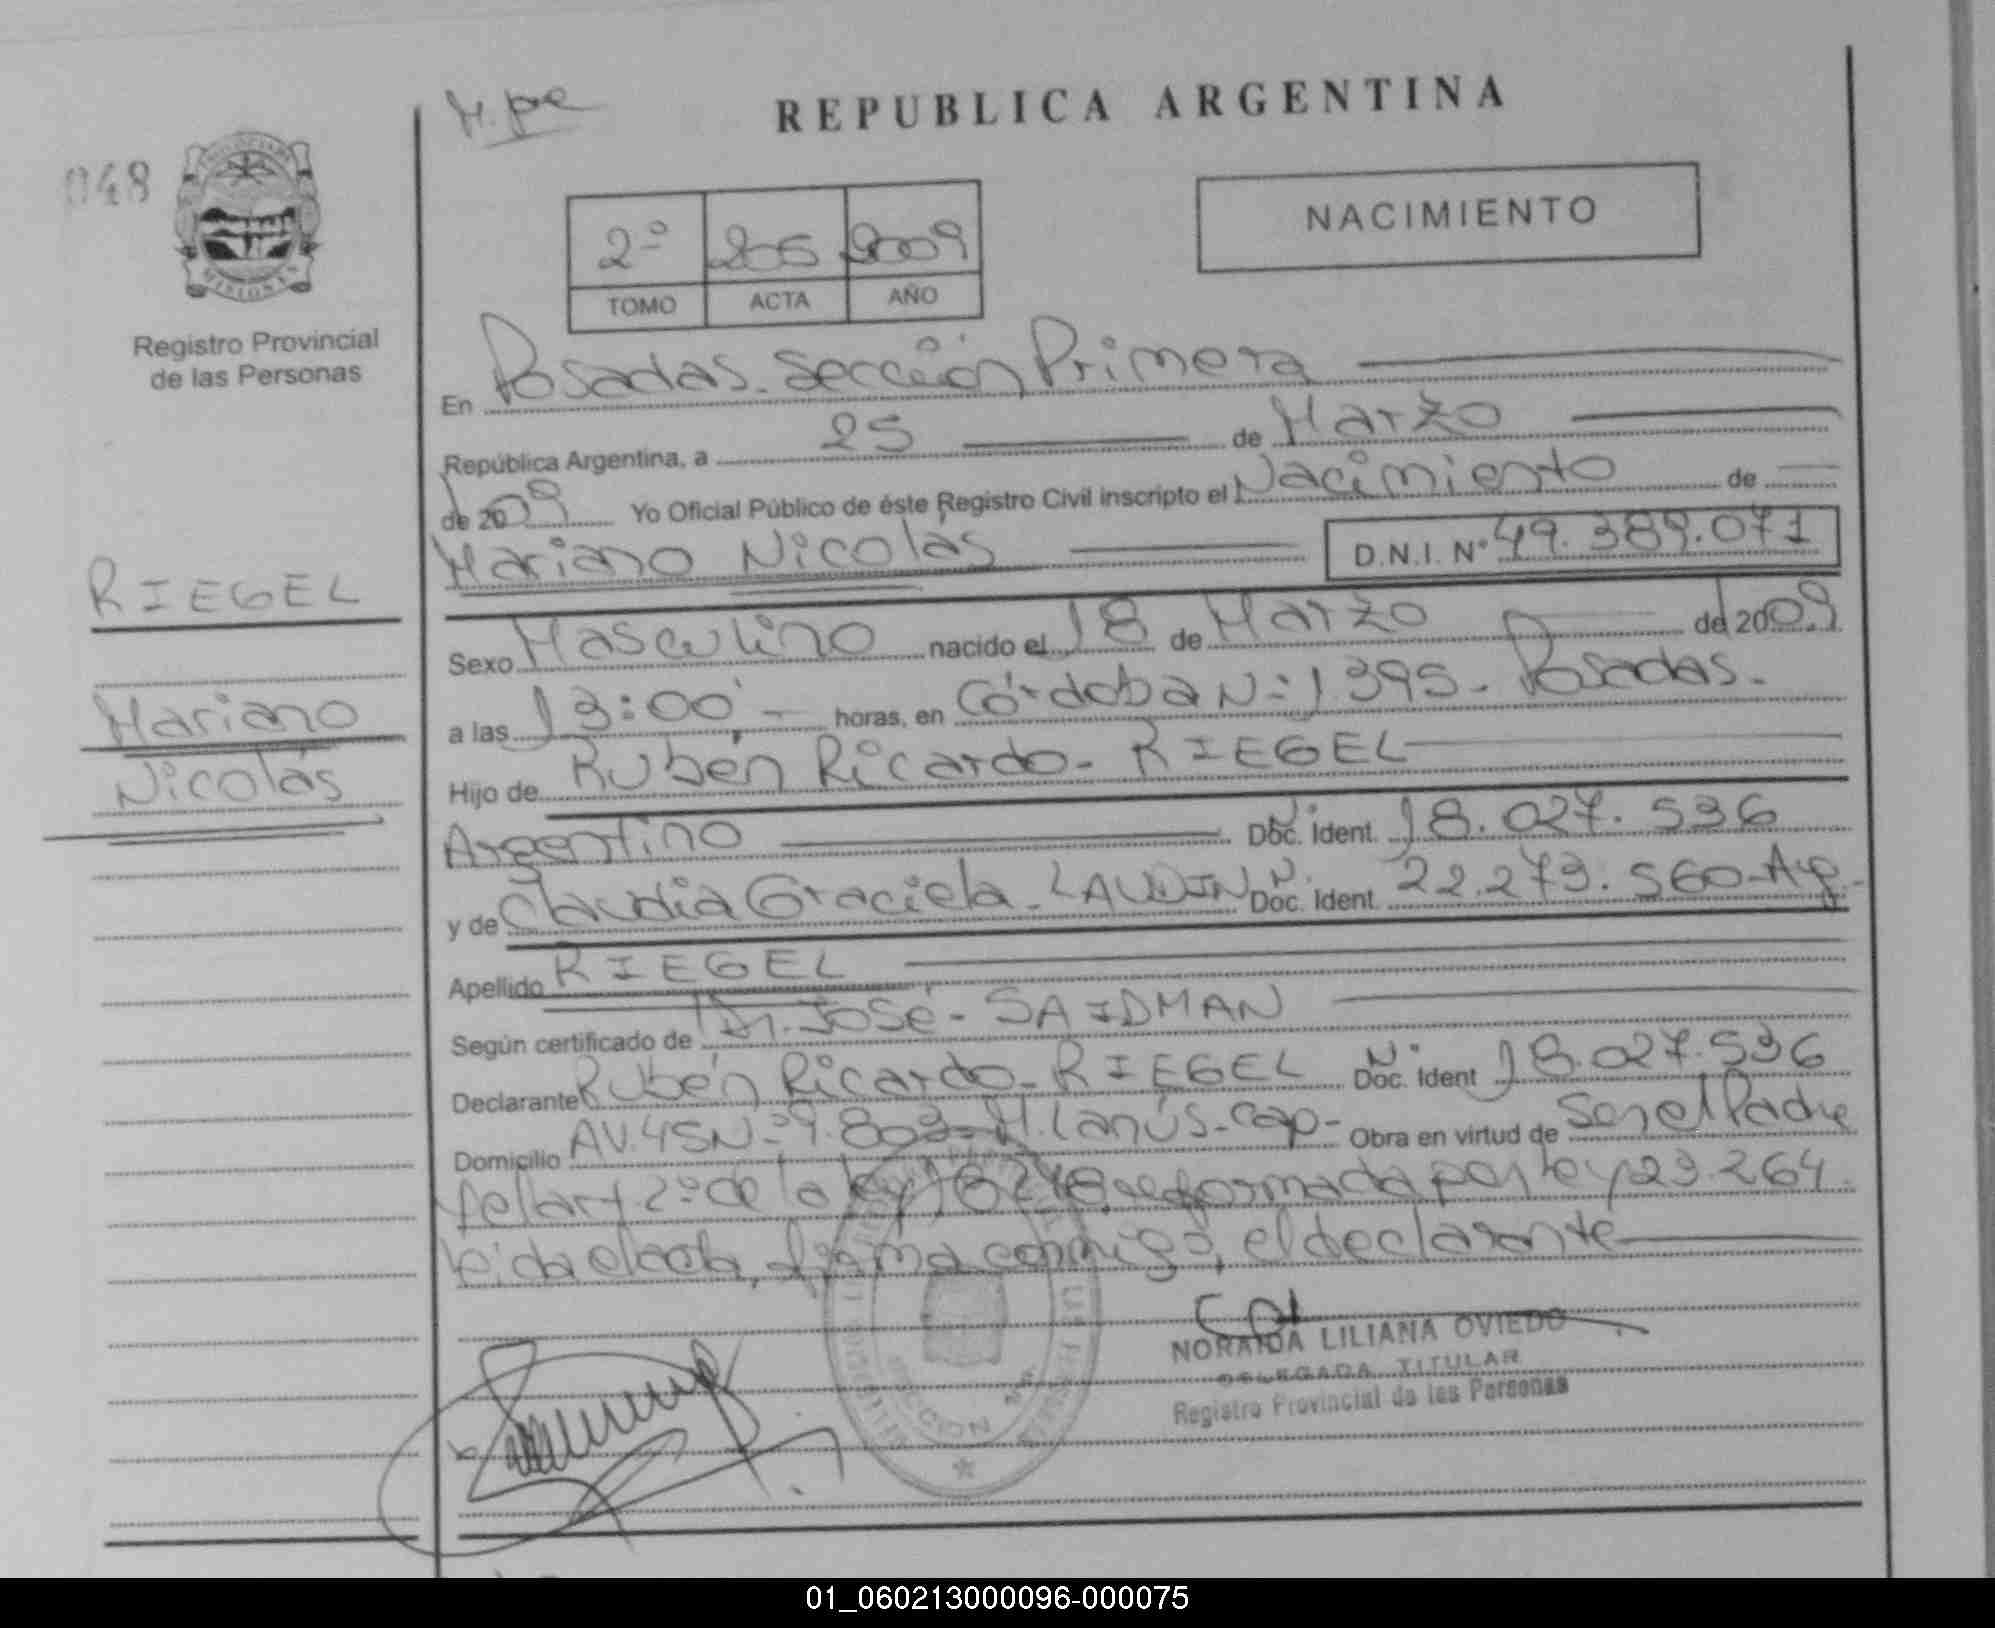 H. pe
REPUBLICA ARGENTINA
048
MISIONES
NACIMIENTO
2º 205 2009
TOMO ACTA AÑO
Registro Provincial
de las Personas
En Posadas. Sección Primera
República Argentina, a 25 de Marzo
de 2009 Yo Oficial Público de éste Registro Civil inscripto el Nacimiento de
Mariano Nicolás D.N.I. Nº 49.389.071
RIEGEL
Mariano
Nicolás
Sexo Masculino nacido el 18 de Marzo de 2009
a las 13:00 horas, en Córdoba Nº 1395- Posadas.
Hijo de Rubén Ricardo- RIEGEL
Argentino Doc. Ident. 18.027.536
y de Claudia Graciela- LAUDIN N. Doc. Ident. 22.273.560-Arg-
Apellido RIEGEL
Según certificado de Dr. José- SAIDMAN
Declarante Rubén Ricardo- RIEGEL Doc. Ident 18.027.536
Domicilio AV.45Nº 9.803- M. Lanús-cap- Obra en virtud de Ser el Padre
del art 2º de la ley 18248 reformada por ley 23.264.
Leida el acta, firma conmigo, el declarante
NORAIDA LILIANA OVIEDO
DELEGADA TITULAR
Registro Provincial de las Personas
SECCION
01_060213000096-000075